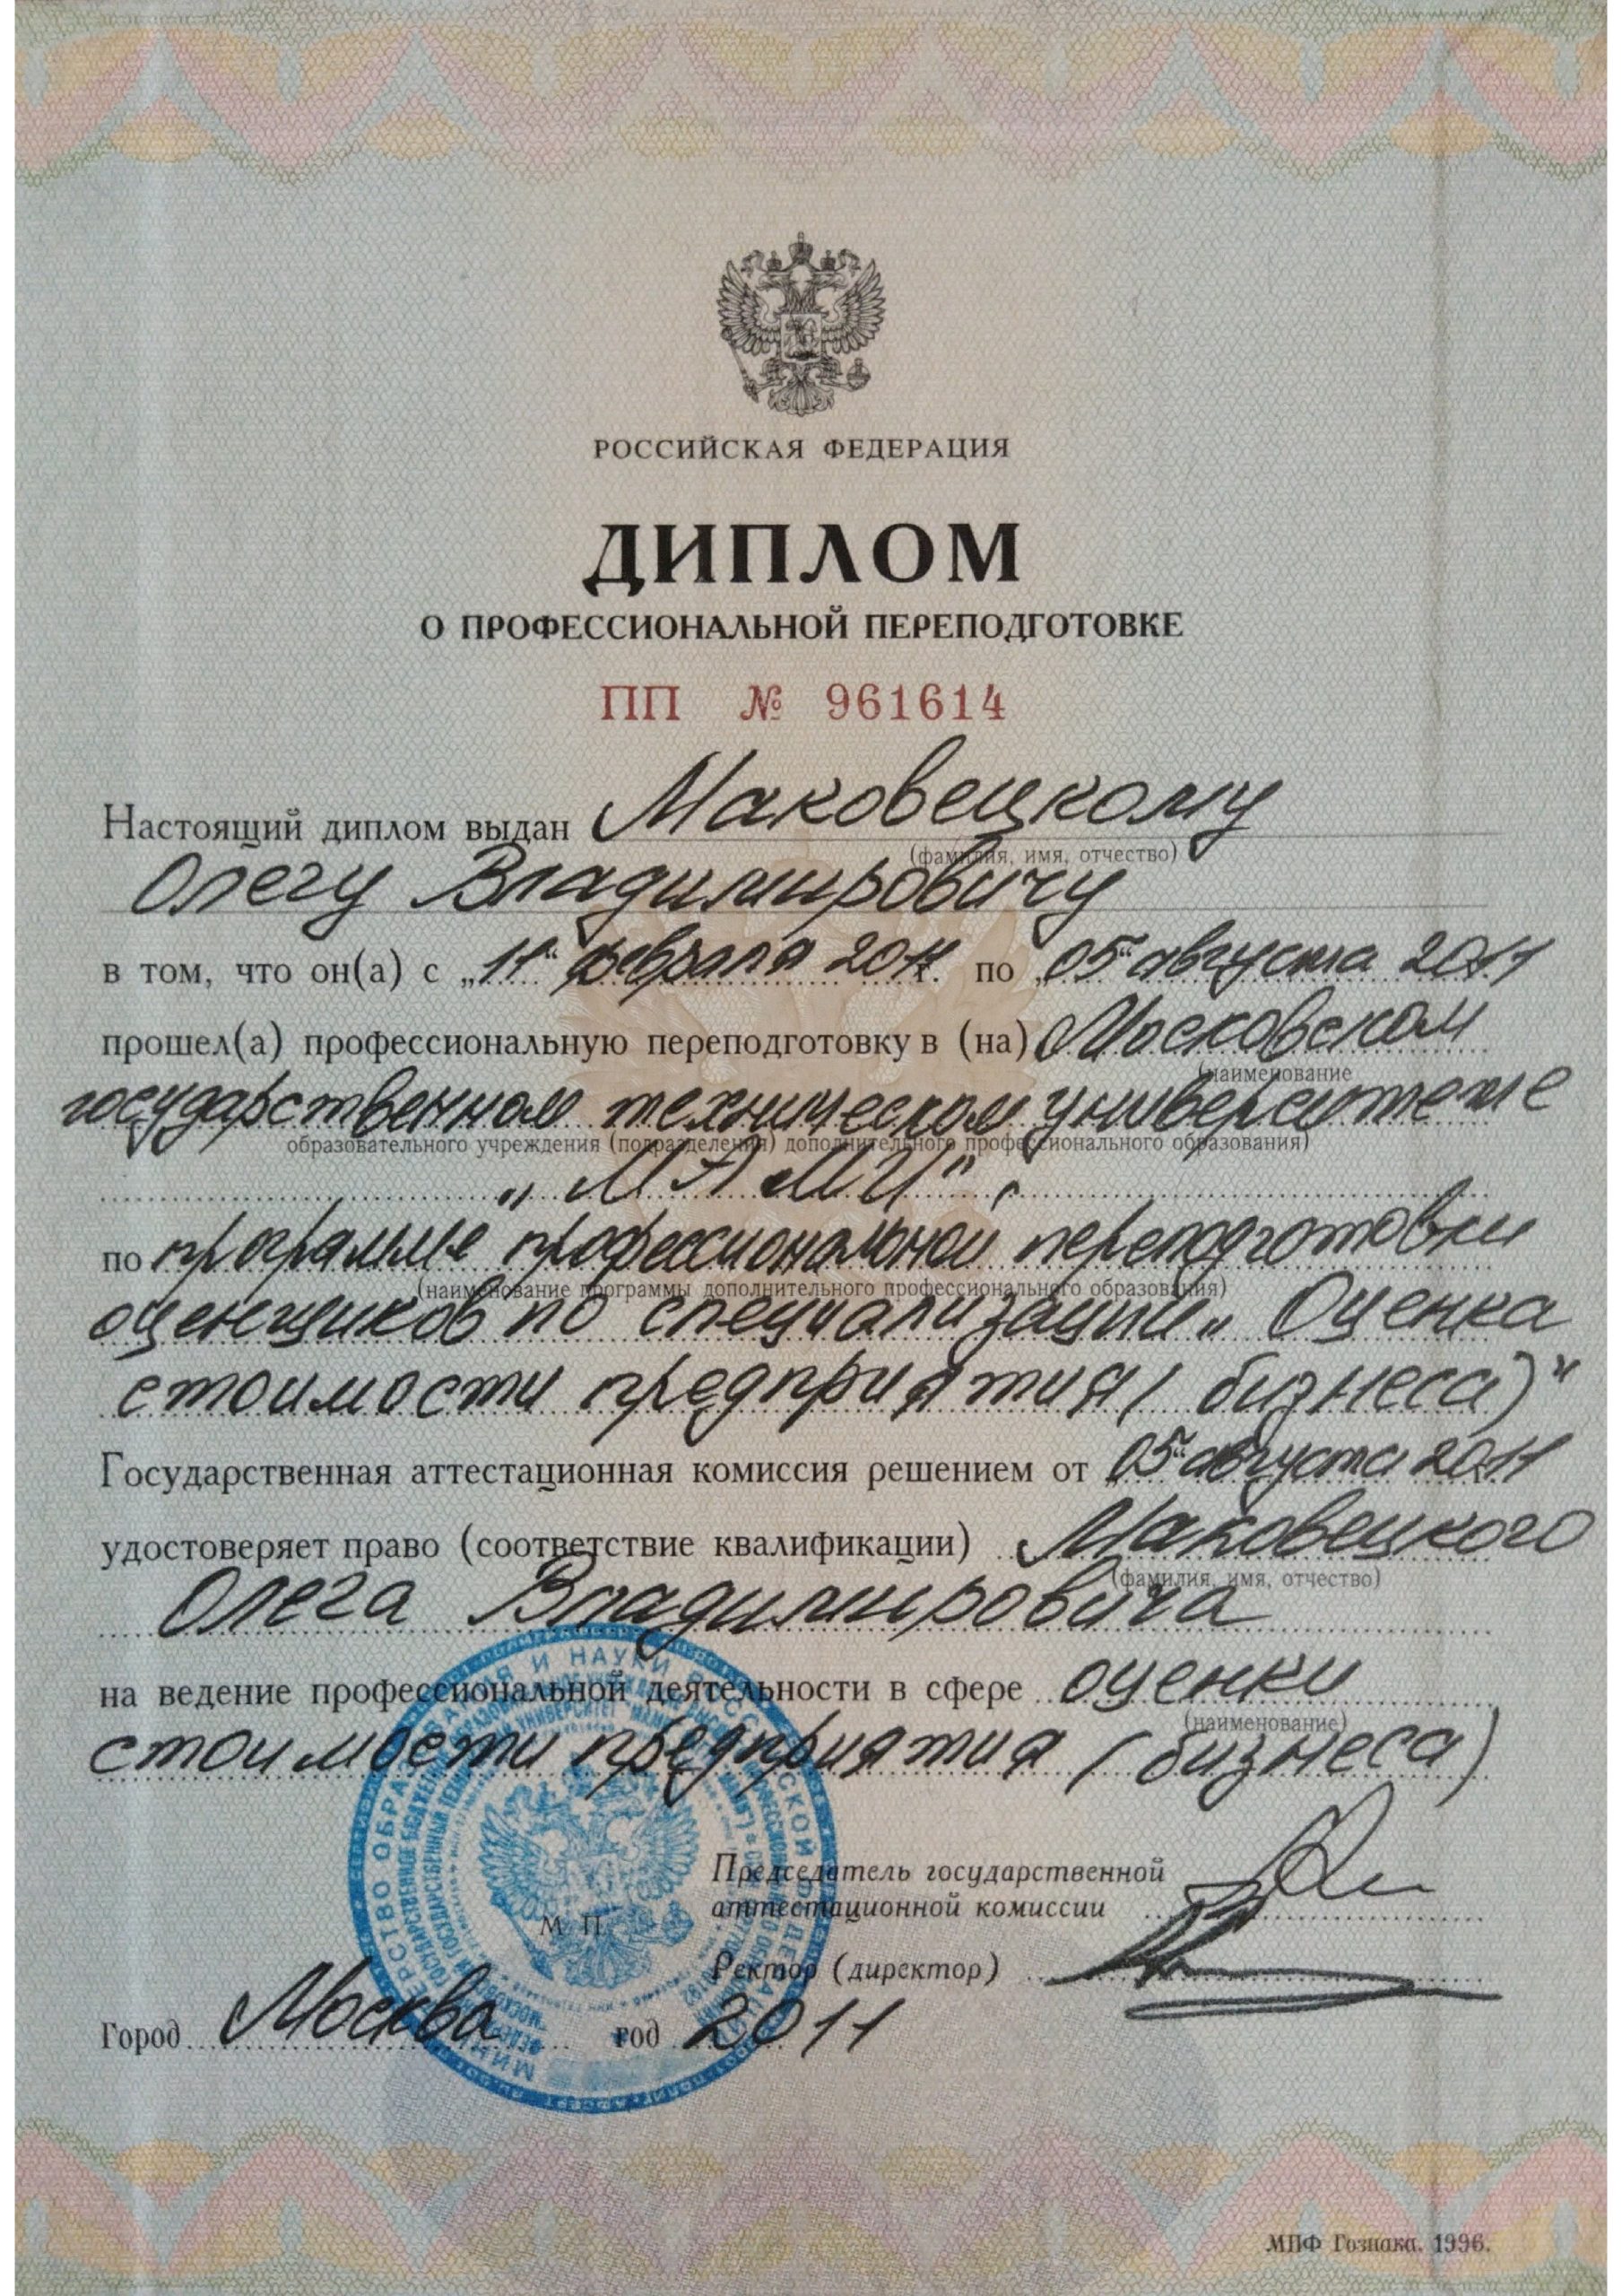 РОССИЙСКАЯ ФЕДЕРАЦИЯ
ДИПЛОМ
О ПРОФЕССИОНАЛЬНОЙ ПЕРЕПОДГОТОВКЕ
ПП № 961614
Настоящий диплом выдан Маковецкому
(фамилия, имя, отчество)
Олегу Владимировичу
в том, что он(а) с „11“ февраля 2011г. по „05“ августа 2011
прошел(а) профессиональную переподготовку в (на) Московском
(наименование
государственном техническом университете
образовательного учреждения (подразделения) дополнительного профессионального образования)
„МАМИ“,
по программе профессиональной переподготовки
(наименование программы дополнительного профессионального образования)
оценщиков по специализации „Оценка
стоимости предприятия (бизнеса)“
Государственная аттестационная комиссия решением от „05“ августа 2011
удостоверяет право (соответствие квалификации) Маковецкого
(фамилия, имя, отчество)
Олега Владимировича
на ведение профессиональной деятельности в сфере оценки
(наименование)
стоимости предприятия (бизнеса)
Председатель государственной
аттестационной комиссии
М. П.
Ректор (директор)
Город Москва год 2011
МИНИСТЕРСТВО ОБРАЗОВАНИЯ И НАУКИ РОССИЙСКОЙ ФЕДЕРАЦИИ
МПФ Гознака. 1996.